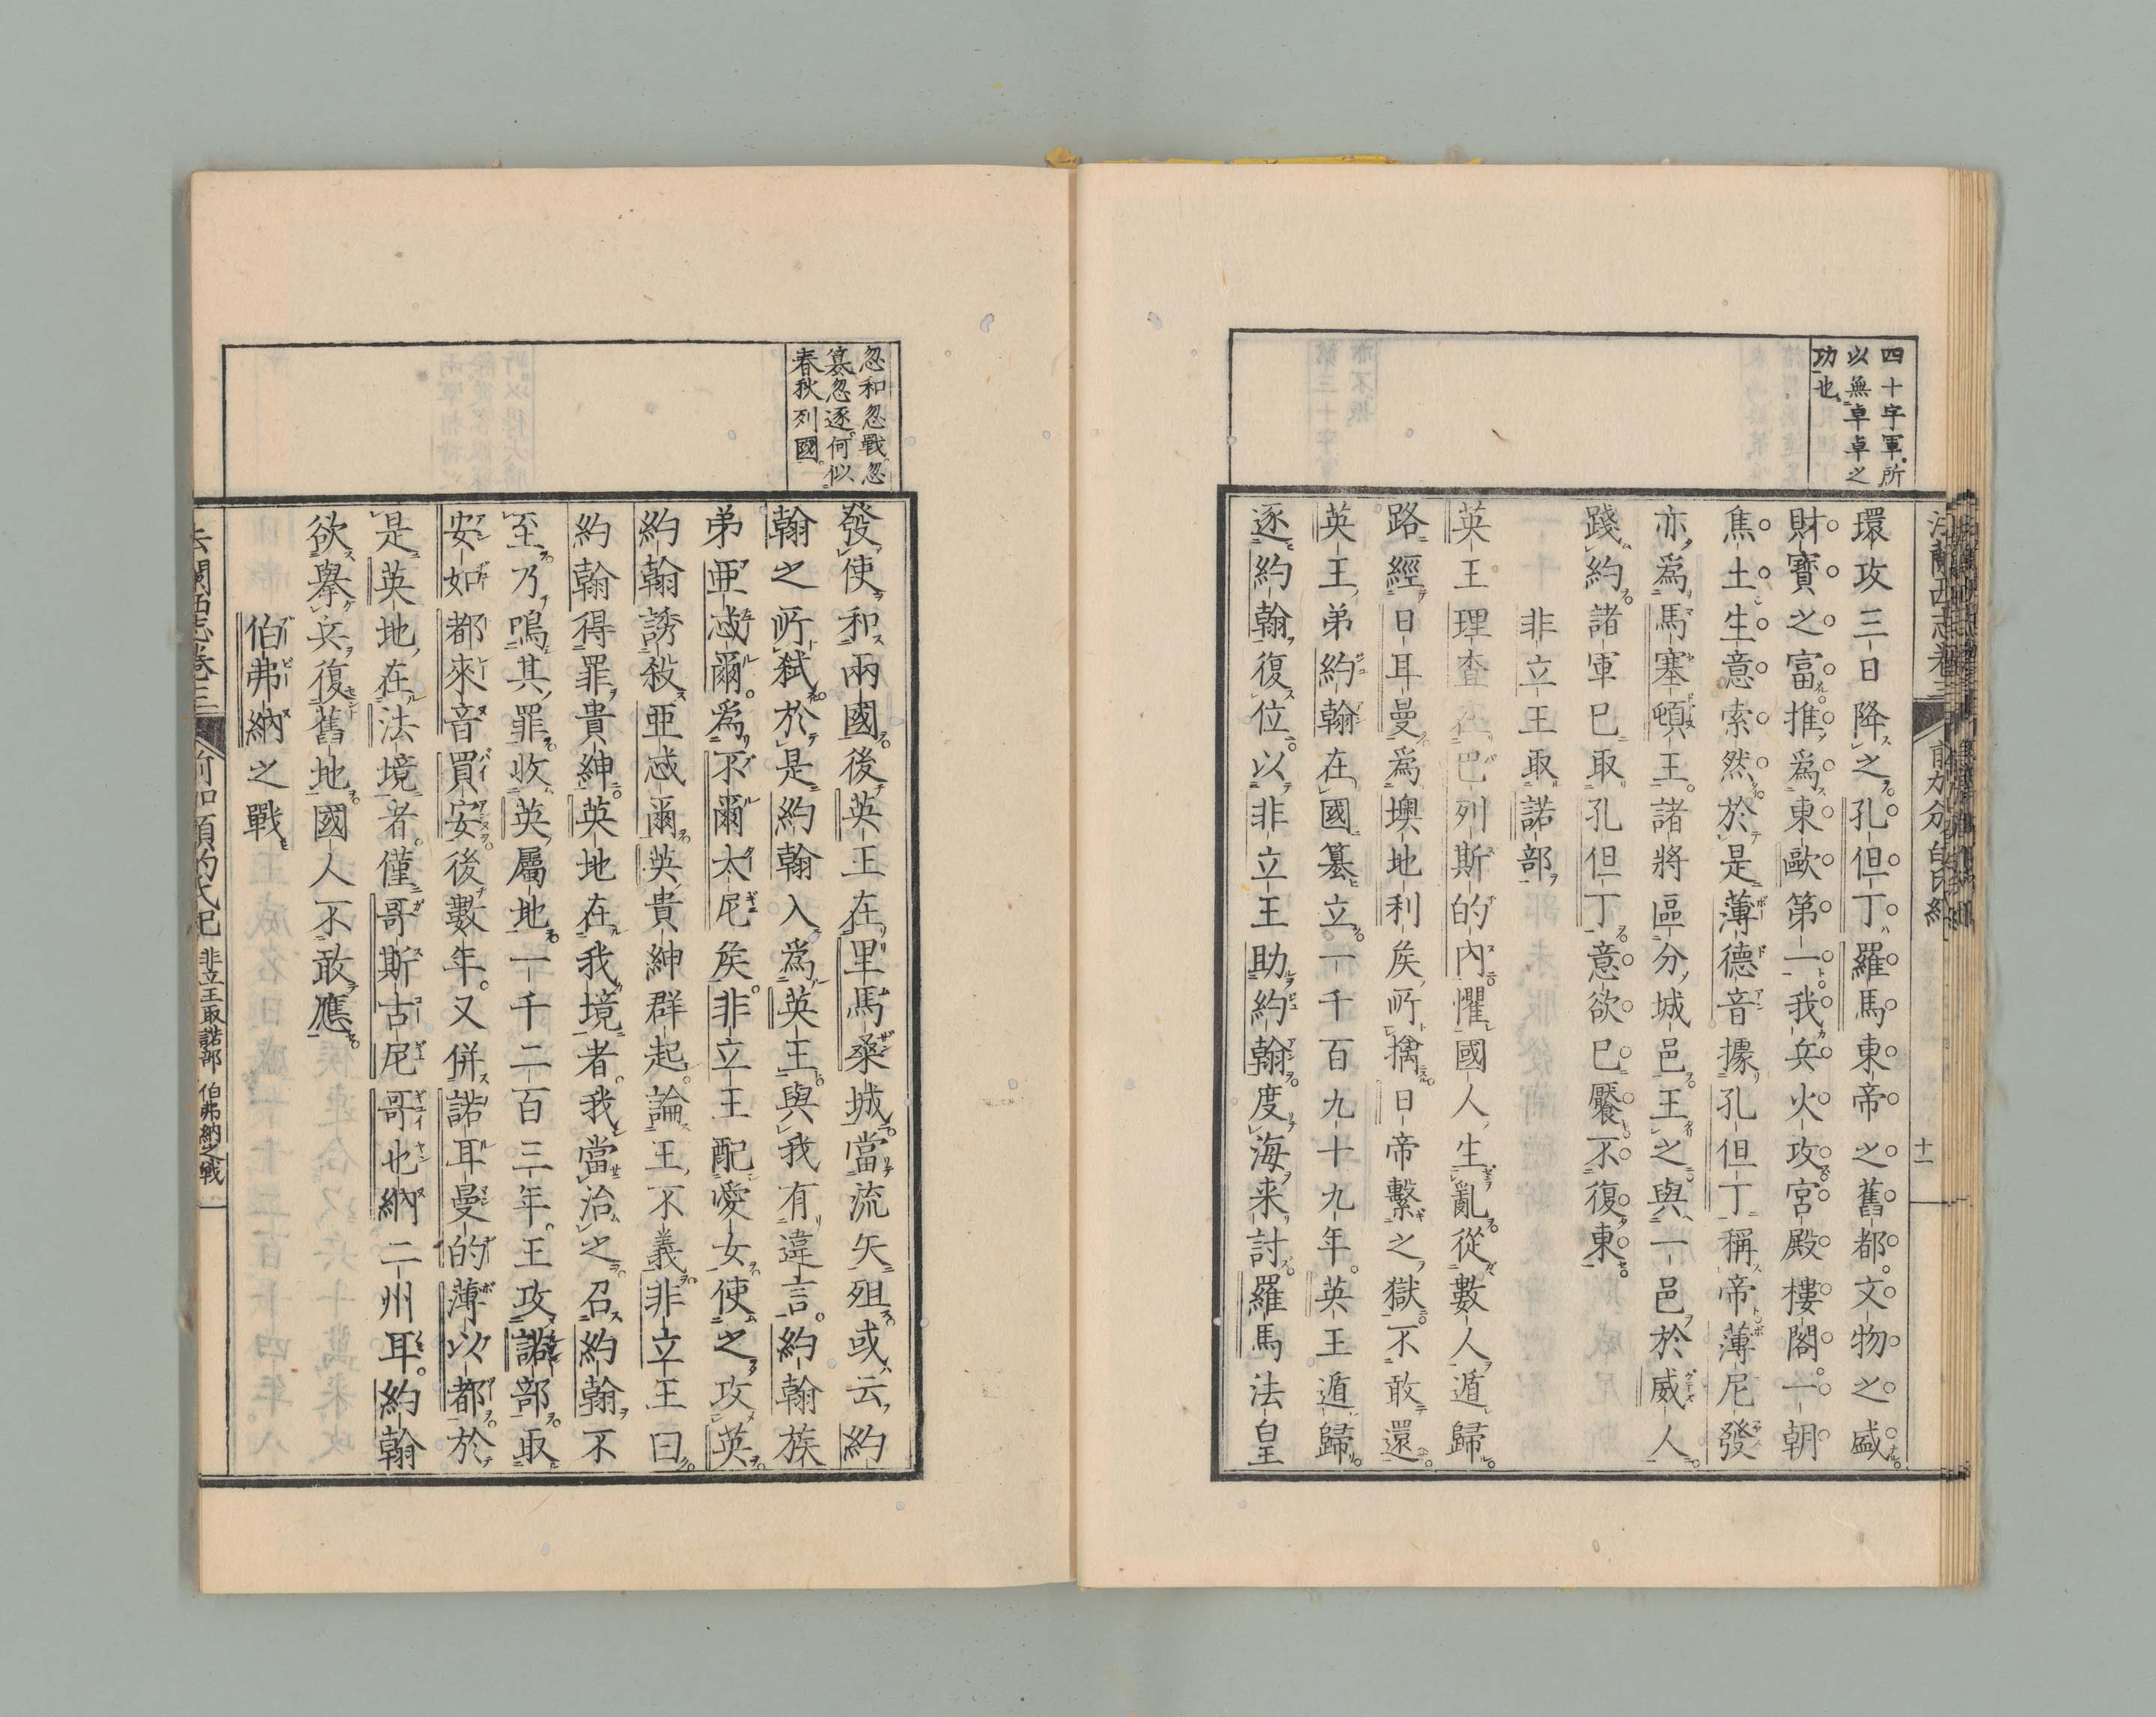 四十字軍所
以無卓卓之
功也
環攻三日降之孔但丁羅馬東帝之舊都文物之盛
財寶之富推爲東歐第一我兵火攻宮殿樓閣一朝
焦土生意索然於是薄德音據孔但丁稱帝薄尼發
亦爲馬塞頓王諸將區分城邑王之與一邑於威人
踐約諸軍已取孔但丁意欲已饜不復東
非立王取諾部
英王理査在巴列斯的內懼國人生亂從數人遁歸
路經日耳曼爲墺地利矦所擒日帝繫之獄不敢還
英王弟約翰在國簒立一千百九十九年英王遁歸
逐約翰復位以非立王助約翰度海来討羅馬法皇
忽和忽戰忽
簒忽逐何似
春秋列國
發使和兩國後英王在里馬桑城當流矢殂或云約
翰之所弑於是約翰入爲英王與我有違言約翰族
弟亜忒爾爲不爾太尼矦非立王配愛女使之攻英
約翰誘殺亜忒爾英貴紳群起論王不義非立王曰
約翰得罪貴紳英地在我境者我當治之召約翰不
至乃鳴其罪收英屬地一千二百三年王攻諾部取
安如都來音買安後數年又併諾耳曼的薄以都於
是英地在法境者僅哥斯古尼哥也納二州耳約翰
欲擧兵復舊地國人不敢應
伯弗納之戰
非立王取諾部 伯弗納之戰